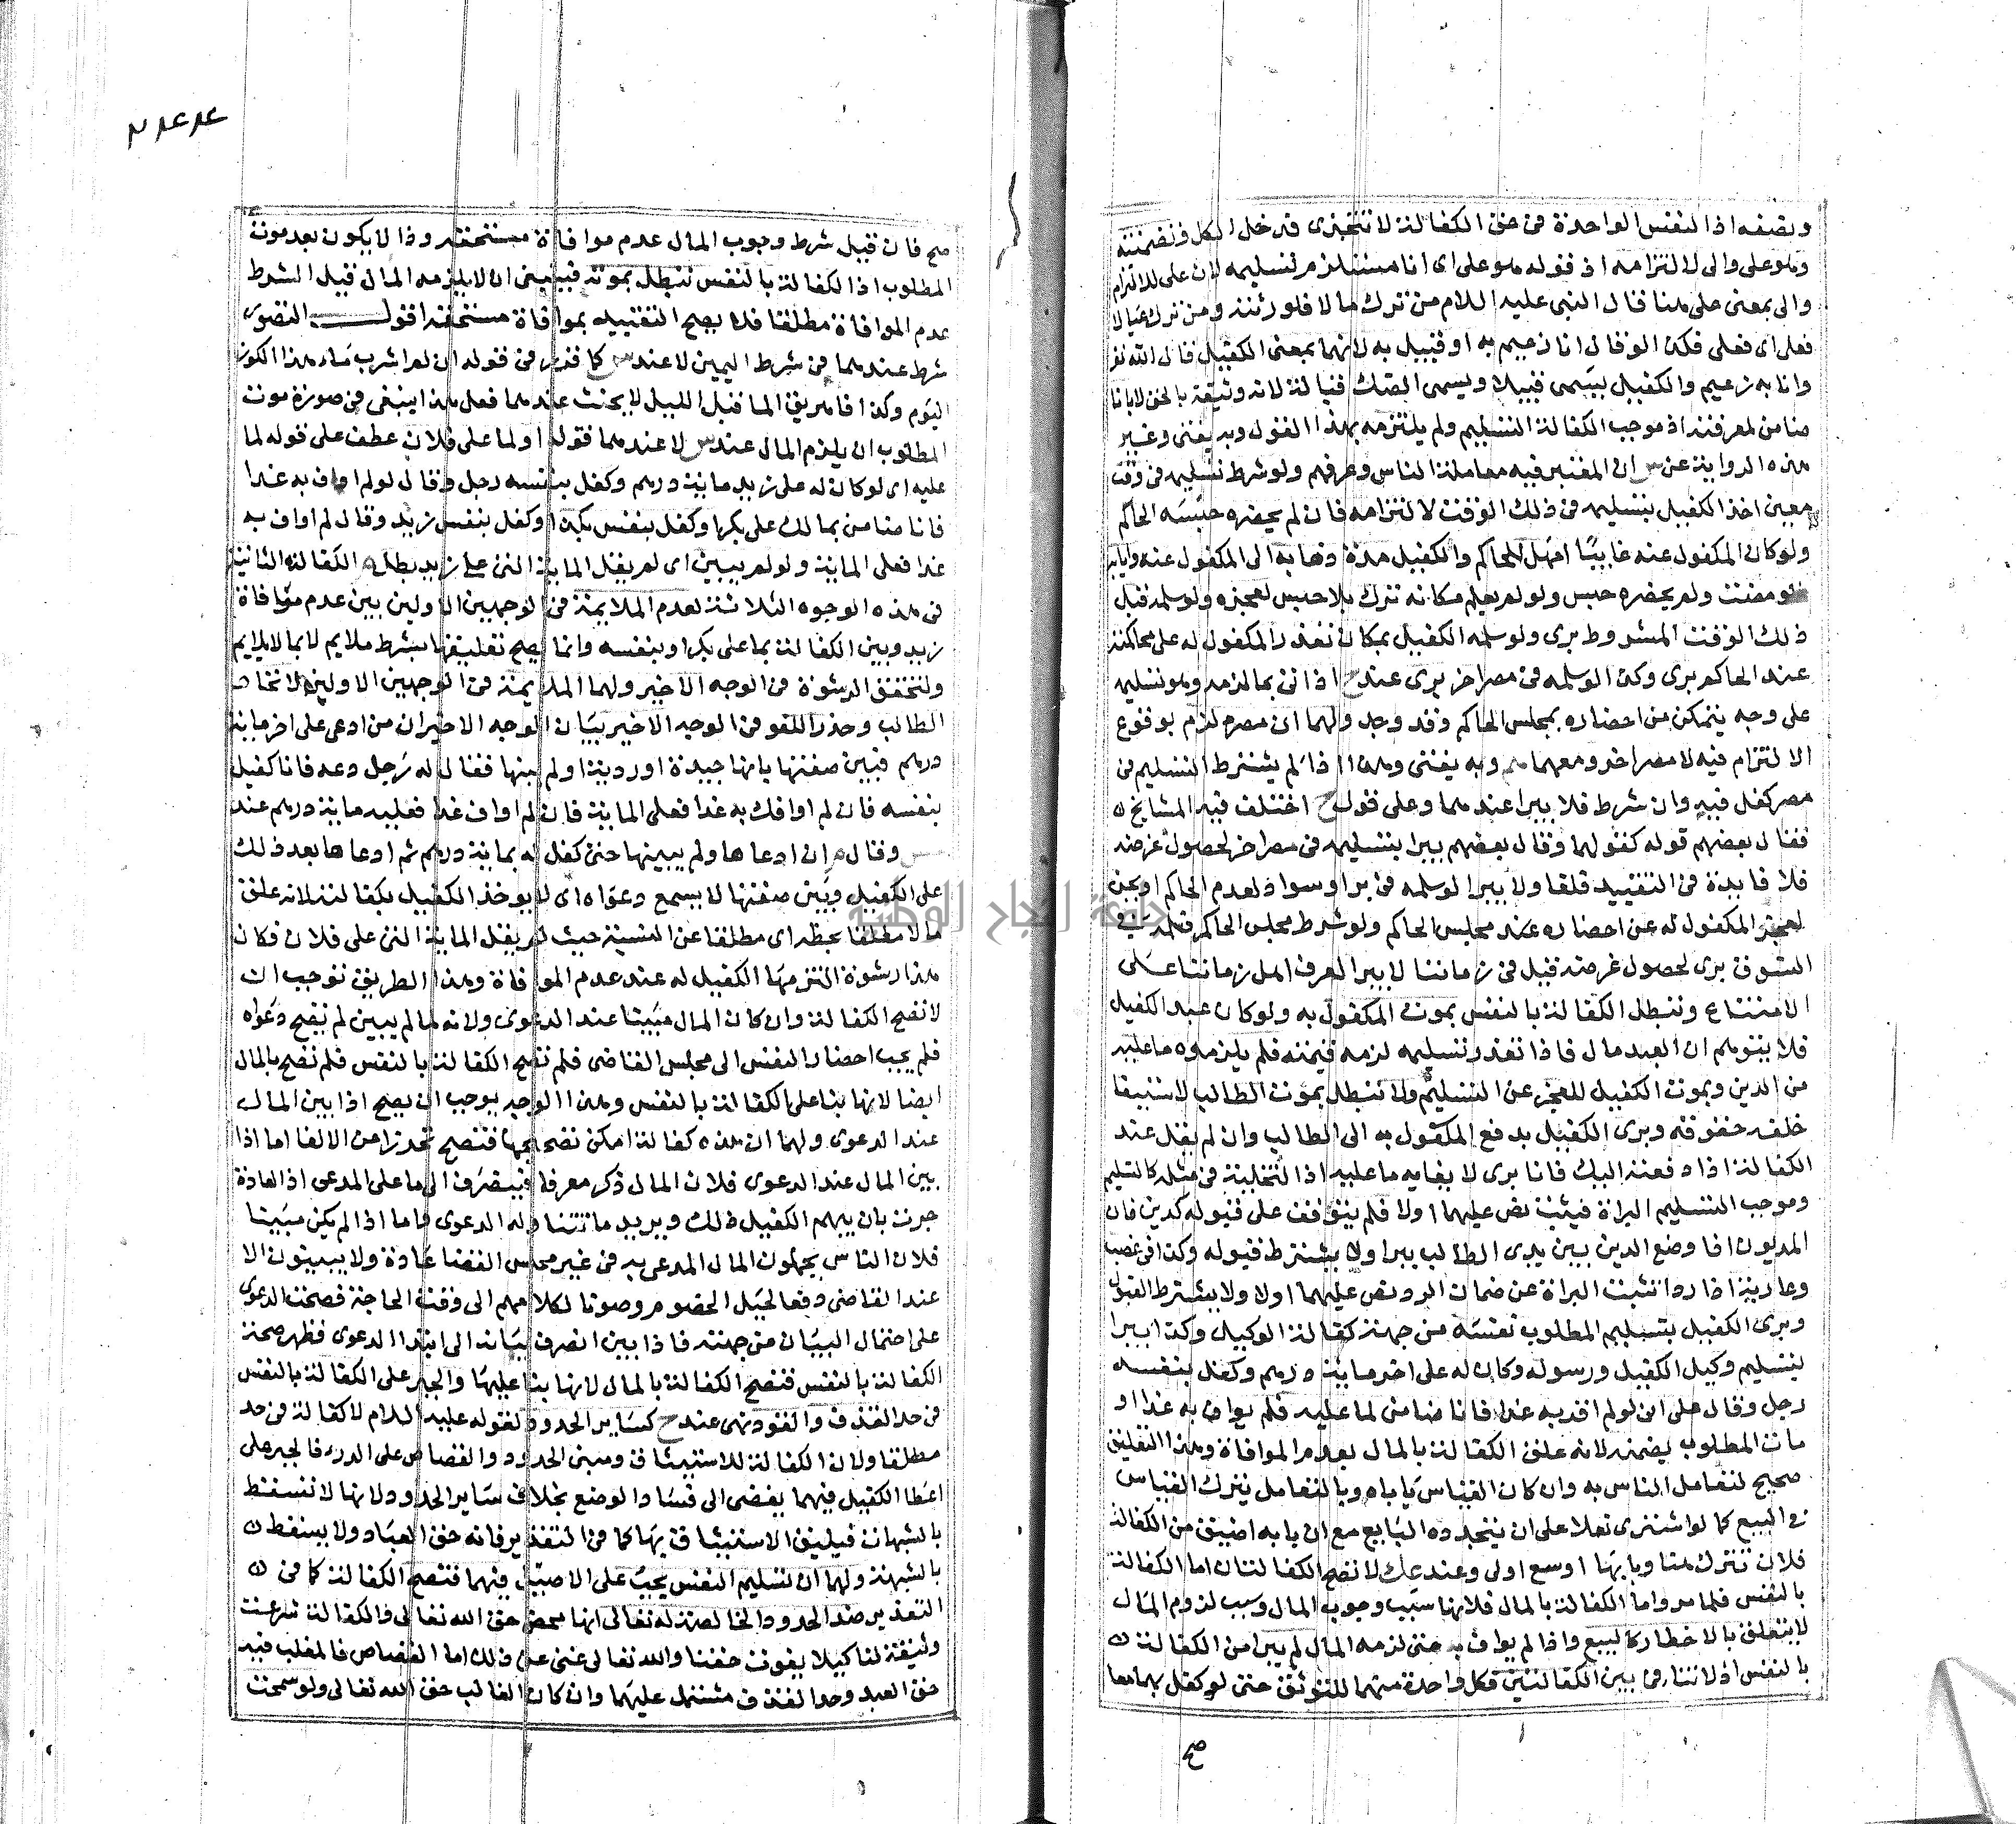 ونصفه اذ النفس الواحدة في حق الكفالة لا تتجزى فدخل الكل ونضمنته
وهو على والى لالتزامه اذ قوله هو على اى انا مستلزم تسليمه لان على للالزام
والى بمعنى على هنا قال النبى عليه السلام من ترك مالا فلورثته ومن ترك عيالا
فعلى اى فعلى فكذا لو قال انا زعيم به او قبيل به لانهما بمعنى الكفيل قال الله تعالى
وانا به زعيم والكفيل يسمى قبيلا ويسمى الصك قبالة لانه وثيقة بالحق لا بانا
ضامن لمعرفته اذ موجب الكفالة التسليم ولم يلتزمه بهذا القول وبه يفتى وغير
هذه الرواية عن س ان المعتبر فيه معاملة الناس وعرفهم ولو شرط تسليمه في وقت
معين اخذ الكفيل بتسليمه في ذلك الوقت لالتزامه فان لم يحضره حبسه الحاكم
ولو كان المكفول عنه غايبا امهل الحاكم والكفيل مدة ذهابه الى المكفول عنه وايابه
فلو مضت ولم يحضره حبس ولو لم يعلم مكانه ترك بلا حبس لعجزه ولو سلمه قبل
ذلك الوقت المشروط برى ولو سلمه الكفيل بمكان تعذر المكفول له على محاكمته
عند الحاكم برى وكذا لو سلمه في مصر اخر برى عند ح اذ اتى بما لزمه وهو تسليمه
على وجه يتمكن من احضاره بمجلس الحاكم وقد وجد ولهما ان مصره لزم بوقوع
الالتزام فيه لا مصر اخر ومعهما وبه يفتى وهذا اذا لم يشترط التسليم في
مصر كفل فيه وان شرط فلا يبرا عندهما وعلى قول ح اختلف فيه المشايخ
فقال بعضهم قوله كقولهما وقال بعضهم يبرا بتسليمه في مصر اخر لحصول غرضه
فلا فايدة في التقييد قلقا ولا يبرا لو سلمه في بر او سواد لعدم الحاكم او يجن
لعجز المكفول له عن احضاره عند مجلس الحاكم ولو شرط مجلس الحاكم فسلمه في
السوق برى لحصول غرضه قيل في زماننا لا يبرا لعرف اهل زماننا على
الامتناع وتبطل الكفالة بالنفس بموت المكفول به ولو كان عبد الكفيل
فلا يتوهم ان العبد مال فاذا تعذر تسليمه لزمه قيمته فلم يلزموه ما عليه
من الدين وبموت الكفيل للعجز عن التسليم ولا تبطل بموت الطالب لاستيفا
خلفه حقوقه وبرى الكفيل بدفع المكفول به الى الطالب وان لم يقل عند
الكفالة اذا دفعته اليك فانا برى لا يفايه ما عليه اذ التخلية في مثله كالتسليم
وموجب التسليم البراة فيثبت نص عليهما اولا فلم يتوقف على قبوله كدين فان
المديون اذا وضع الدين بين يدى الطالب يبرا ولا يشترط قبوله وكذا في غصب
وعارية اذا ردا تثبت البراة عن ضمان الرد نص عليهما اولا ولا يشترط القبول
وبرى الكفيل بتسليم المطلوب نفسه من جهة كفالة الوكيل وكذا يبرا
بتسليم وكيل الكفيل ورسوله وكان له على اخر ماية درهم وكفل بنفسه
رجل وقال على ان لو لم افد به غدا فانا ضامن لما عليه فلم يواف به غدا او
مات المطلوب يضمنه لانه علق الكفالة بالمال بعدم الموافاة وهذا التعليق
صحيح لتعامل الناس به وان كان القياس ياباه وبالتعامل يترك القياس
في البيع كما لو اشترى نعلا على ان يتجدده البايع مع ان بابه اضيق من الكفالة
فلان تترك هنا وبابها اوسع اولى وعند ك لا تصح الكفالتان اما الكفالة
بالنفس فلما مر واما الكفالة بالمال فلانها سبب وجوب المال وسبب لزوم المال
لا يتعلق بالاخطار كالبيع واذا لم يواف به حتى لزمه المال لم يبرا من الكفالة
بالنفس اذ لا تنافى بين الكفالتين فكل واحدة منهما للتوثق حتى لو كفل بهما معا
صح
٢٤٤
صح فان قيل شرط وجوب المال عدم موافاة مستحقة وذا لا يكون بعد موت
المطلوب اذ الكفالة بالنفس تبطل بموته فينبغى ان لا يلزمه المال قيل الشرط
عدم الموافاة مطلقا فلا يصح التقييد بموافاة مستحقة اقول التصور
شرط عندهما في شرط اليمين لا عند س كما قرر في قوله ان لم اشرب ماء هذا الكوز
اليوم وكذا فاهريق الما قبل الليل لا يحنث عندهما فعل هذا ينبغى في صورة موت
المطلوب ان يلزم المال عند س لا عندهما فقوله او لما على فلان عطف على قوله لما
عليه اى لو كان له على زيد ماية درهم وكفل بنفسه رجل وقال لو لم اواف به غدا
فانا ضامن بمالك على بكر او كفل بنفس بكر او كفل بنفس زيد وقال لم اواف به
غدا فعلى الماية ولو لم يبين اى لم يقل الماية التى على زيد بطل م الكفالة الثانية
في هذه الوجوه الثلاثة لعدم الملايمة في الوجهين الاولين بين عدم موافاة
زيد وبين الكفالة بما على بكر او بنفسه وانما يصح تعليقها بشرط ملايم لا بما لا يلايم
ولتحقق الرشوة في الوجه الاخير ولهما الملايمة في الوجهين الاولين لاتحاد
الطالب وحذر اللغو في الوجه الاخير بيان الوجه الاخير ان من ادعى على اخر ماية
درهم فبين صفتها بانها جيدة او ردية او لم يبينها فقال له رجل دعه فانا كفيل
بنفسه فان لم اوافك به غدا فعلى الماية فان لم اواف غدا فعليه ماية درهم عند
س وقال م ان ادعاها ولم يبينها حتى كفل له بماية درهم ثم ادعاها بعد ذلك
على الكفيل وبين صفتها لا يسمع دعواه اى لا يوخذ الكفيل بكفالته لانه علق
مالا مطلقا بخطر اى مطلقا عن النسبة حيث لم يقل الماية التى على فلان فكان
هذا رشوة التزمها الكفيل له عند عدم الموافاة وهذا الطريق توجب ان
لا تصح الكفالة وان كان المال مبينا عند الدعوى ولانه ما لم يبين لم تصح دعواه
فلم يجب احضار النفس الى مجلس القاضى فلم تصح الكفالة بالنفس فلم تصح بالمال
ايضا لانها بنا على الكفالة بالنفس وهذا الوجه يوجب ان يصح اذا بين المال
عند الدعوى ولهما ان هذه كفالة امكن تصحيحها فتصح تحرزا عن الالغا اما اذا
بين المال عند الدعوى فلان المال ذكر معرفا فينصرف الى ما على المدعى اذ العادة
جرت بان يبهم الكفيل ذلك ويريد ما تتناوله الدعوى واما اذا لم يكن مبينا
فلان الناس يجملون المال المدعى به في غير مجلس القضا عادة ولا يبينون الا
عند القاضى دفعا لحيل الخصوم وصونا لكلامهم الى وقت الحاجة فصحت الدعوى
على احتمال البيان من جهته فاذا بين انصرف بيانه الى ابتدا الدعوى فظهر صحة
الكفالة بالنفس فتصح الكفالة بالمال لانها بنا عليها والجبر على الكفالة بالنفس
في حد القذف والقود نهى عند ح كساير الحدود لقوله عليه السلام لا كفالة في حد
مطلقا ولان الكفالة للاستيثاق ومبنى الحدود والقصاص على الدرء فالجبر على
اعطا الكفيل فيهما يفضى الى فساد الوضع بخلاف ساير الحدود لانها لا تسقط
بالشبهات فيليق الاستيثاق بها كما في التعذير فانه حق العباد ولا يسقط
بالشبهة ولهما ان تسليم النفس يجب على الاصيل فيهما فتصح الكفالة كما في
التعذير ضد الحدود الخالصة له تعالى انها محض حق الله تعالى والكفالة شرعت
وثيقة لنا كيلا يفوت حقنا والله تعالى غنى عن ذلك اما القصاص فالمغلب فيه
حق العبد وحد القذف مشتمل عليهما وان كان الغالب حق الله تعالى ولو سمحت